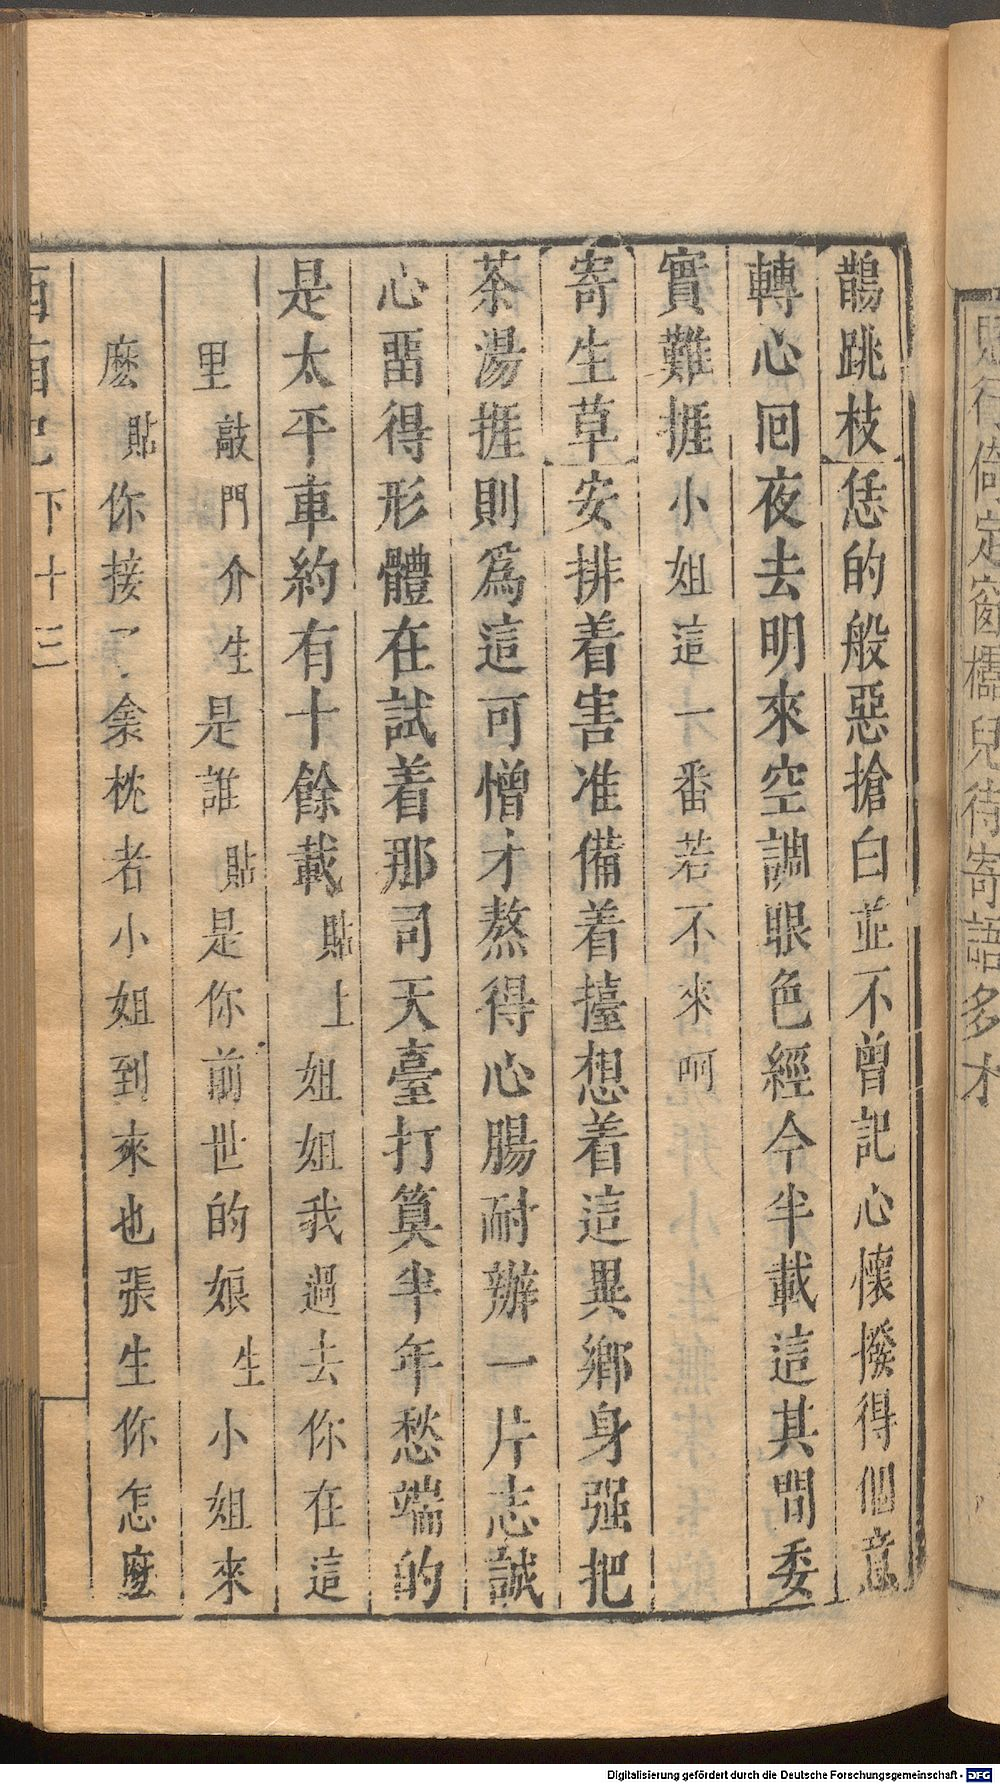 賍行倚定窗櫺兒待寄語多才
鵲跳枝恁的般惡搶白並不曾記心懷撥得個意
轉心囘夜去明來空調眼色經今半載這其間委
實難捱小姐這一番若不來呵
寄生草安排着害准備着擡想着這異鄉身强把
茶湯捱則爲這可憎才熬得心腸耐辦一片志誠
心畱得形體在試着那司天臺打算半年愁端的
是太平車約有十餘載貼上姐姐我過去你在這
里敲門介生是誰貼是你前世的娘生小姐來
麽貼你接了衾枕者小姐到來也張生你怎麽
西廂記 下 十三
Digitalisierung gefördert durch die Deutsche Forschungsgemeinschaft - DFG